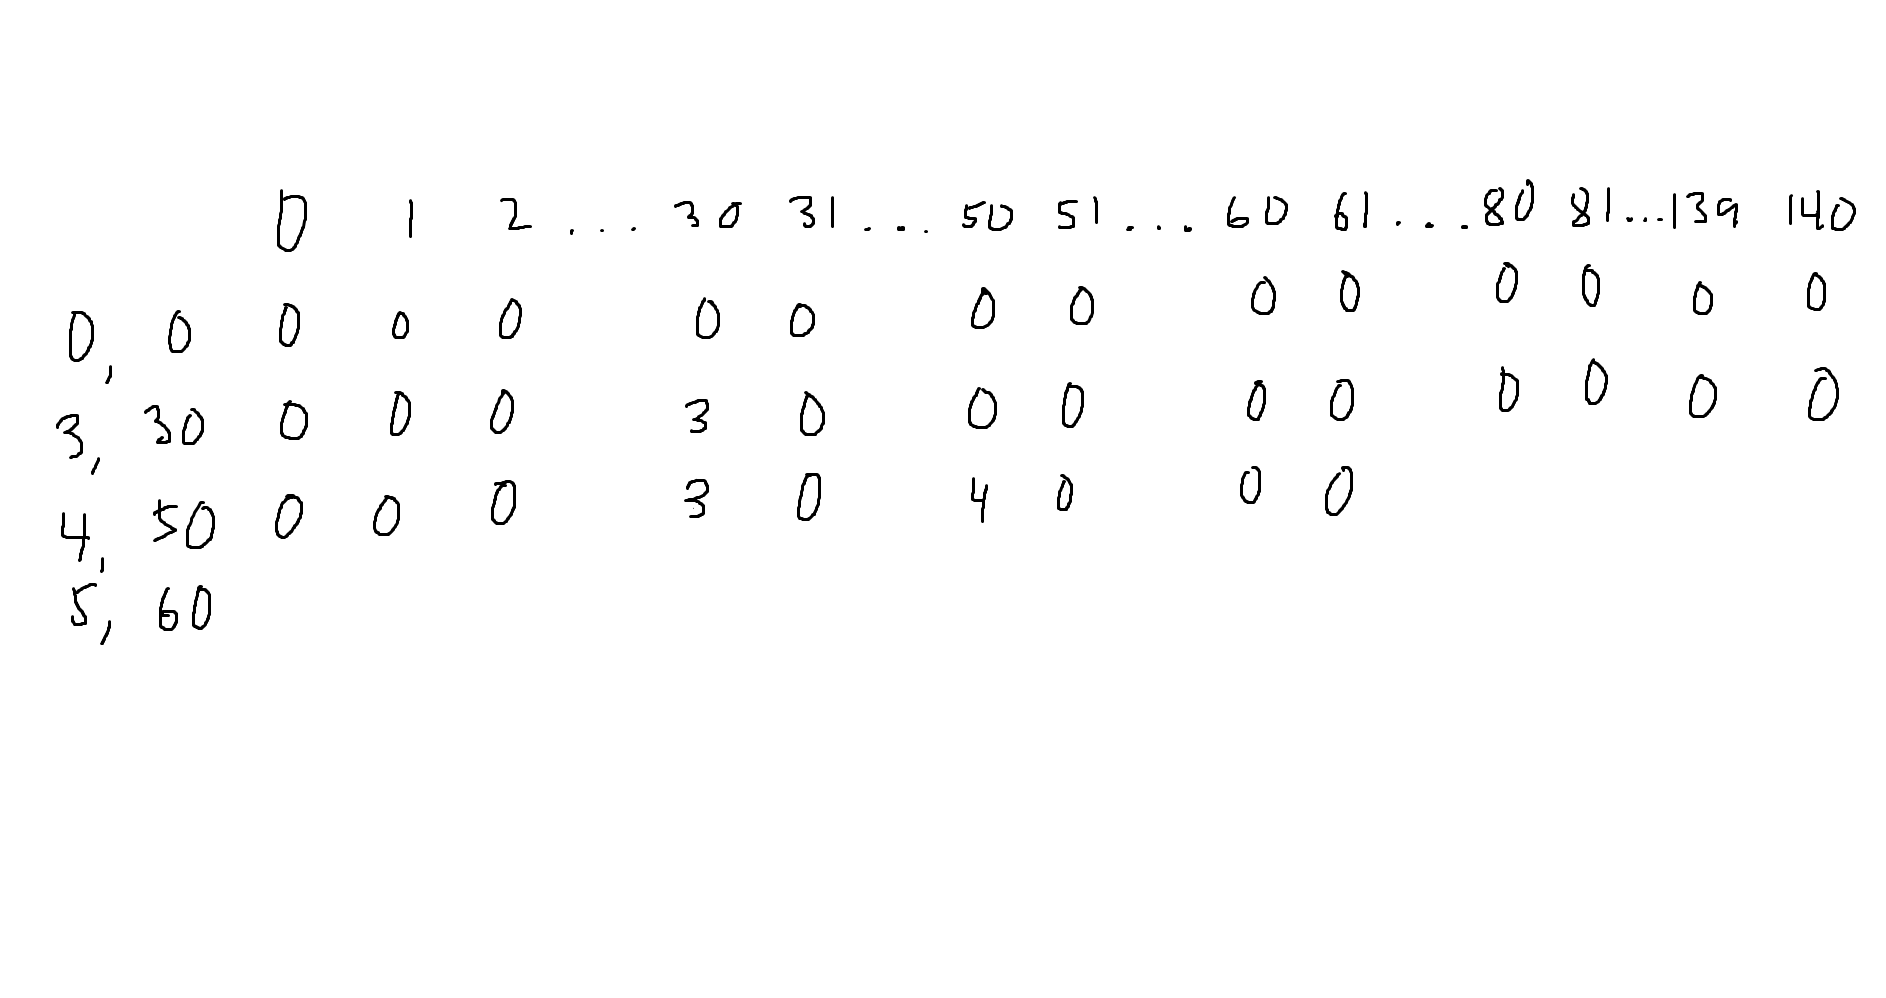 0 1 2 ... 30 31 ... 50 51 ... 60 61 ... 80 81 ... 139 140
0, 0 0 0 0 0 0 0 0 0 0 0 0 0 0
3, 30 0 0 0 3 0 0 0 0 0 0 0 0 0
4, 50 0 0 0 3 0 4 0 0 0
5, 60